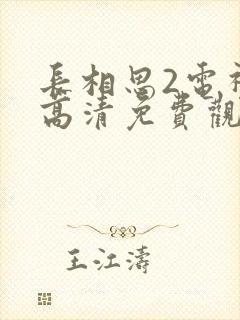 長相思2電視
高清免費觀
王江濤